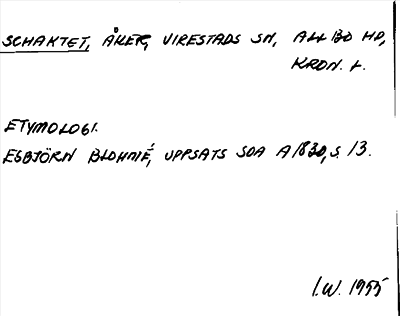 SCHAKTET, ÅKER, VIRESTADS SN, ALLBO HD,
KRON. L.
ETYMOLOGI.
ESBJÖRN BLOHMÉ, UPPSATS SOA A1830, S. 13.
I.W. 1955